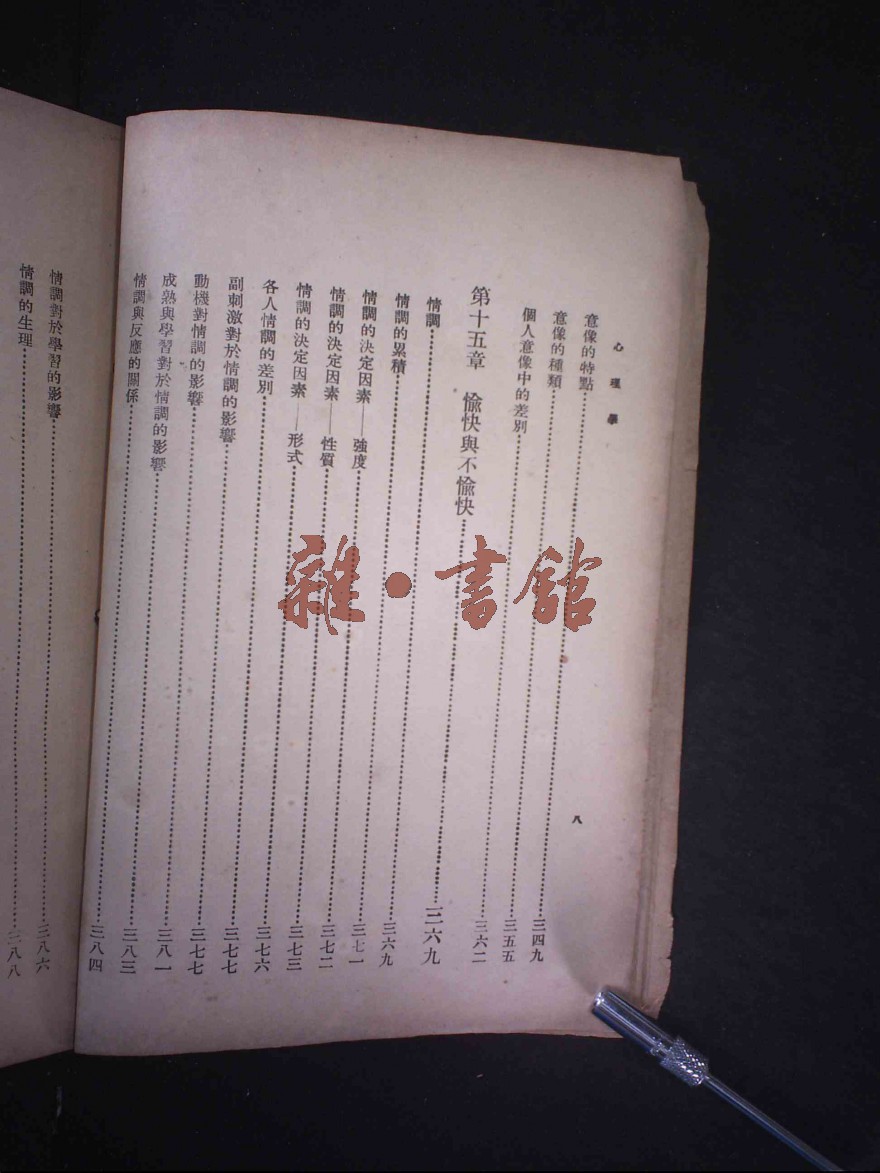 心理學
八
意像的特點……三四九
意像的種類……三五五
個人意像中的差別……三六二
第十五章　愉快與不愉快……三六九
情調……三六九
情調的累積……三七一
情調的決定因素——強度……三七二
情調的決定因素——性質……三七三
情調的決定因素——形式……三七六
各人情調的差別……三七七
副刺激對於情調的影響……三七七
動機對情調的影響……三八一
成熟與學習對於情調的影響……三八三
情調與反應的關係……三八四
情調對於學習的影響……三八六
情調的生理……三八八
雜·書館